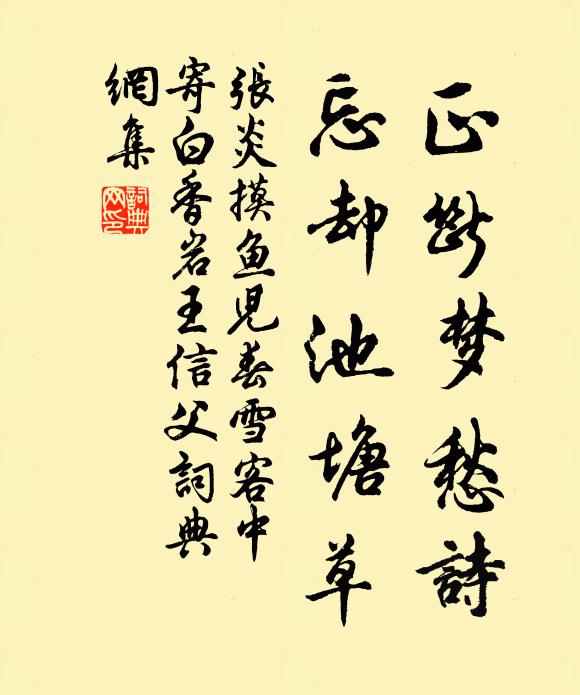 正断梦愁詩
忘却池塘草
張炎摸鱼児春雪客中
寄白香岩王信父詞典
網集
詞典
网印